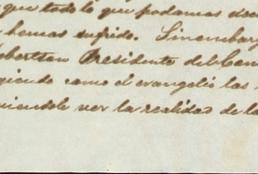 que todo lo que podamos
hemos sufrido. Sin embarg
obertson Presidente del Com
giendo como el evangelio las
iendole ver la realidad de la